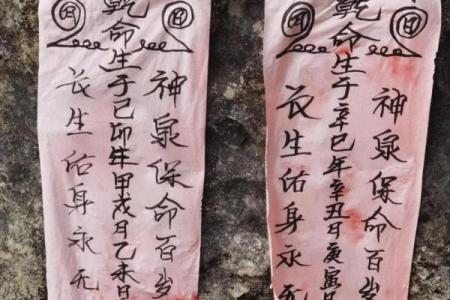 日
日
神泉保命百岁
乾命生于辛巳年辛丑日庚寅日
长生佑身永无
日
日
神泉保命百岁
乾命生于己卯生甲戌日乙未日
长生佑身永无